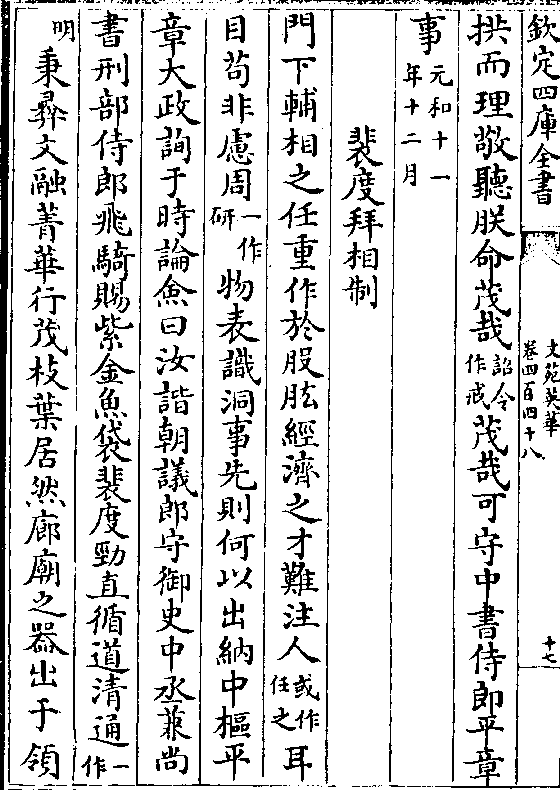 欽定四庫全書
文苑英華
卷四百四十八
十七
拱而理敬聽朕命茂哉詔令作戒茂哉可守中書侍郎平章
事元和十一年十二月
裴度拜相制
門下輔相之任重作於股肱經濟之才難注人或作任之耳
目苟非慮周一作研物表識洞事先則何以出納中樞平
章大政詢于時論僉曰汝諧朝議郎守御史中丞兼尚
書刑部侍郎飛騎賜紫金魚袋裴度勁直循道清通一作
明秉彞文融菁華行茂枝葉居然廊廟之器出于領